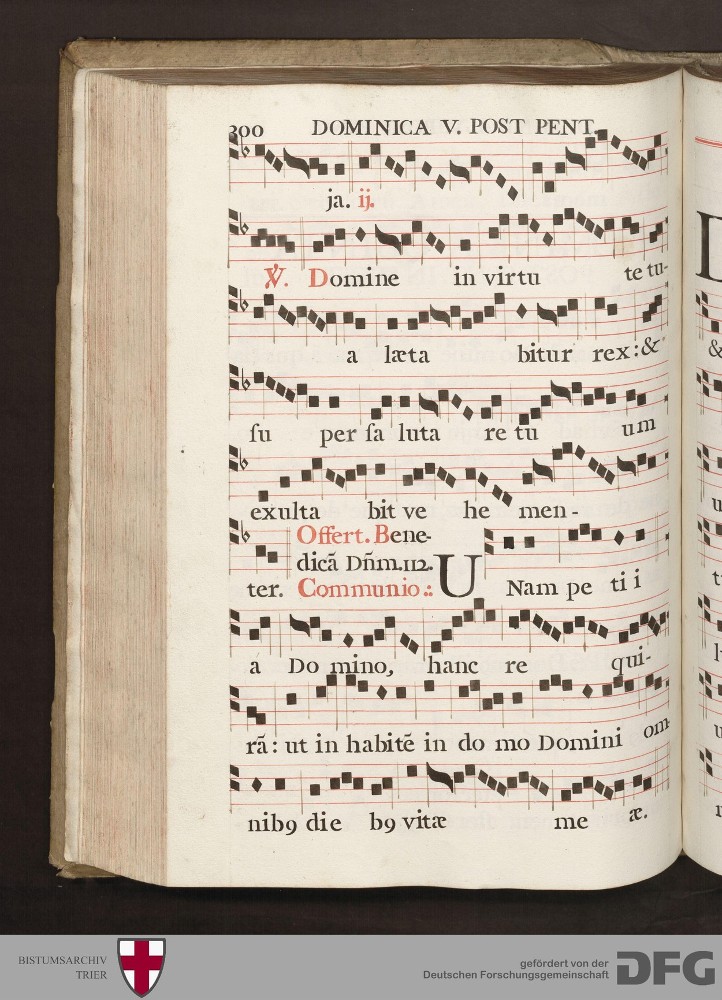 300 DOMINICA V. POST PENT.
ja. ij.
℣. Domine in virtu te tu-
a læta bitur rex: &
ſu per ſa luta re tu um
exulta bit ve he men-
Offert. Bene-
dicã Dñm. 112.
ter. Communio.: U Nam pe ti i
a Do mino, hanc re qui-
rã: ut in habitẽ in do mo Domini om-
nib9 die b9 vitæ me æ.
BISTUMSARCHIV
TRIER
gefördert von der
Deutschen Forschungsgemeinschaft DFG